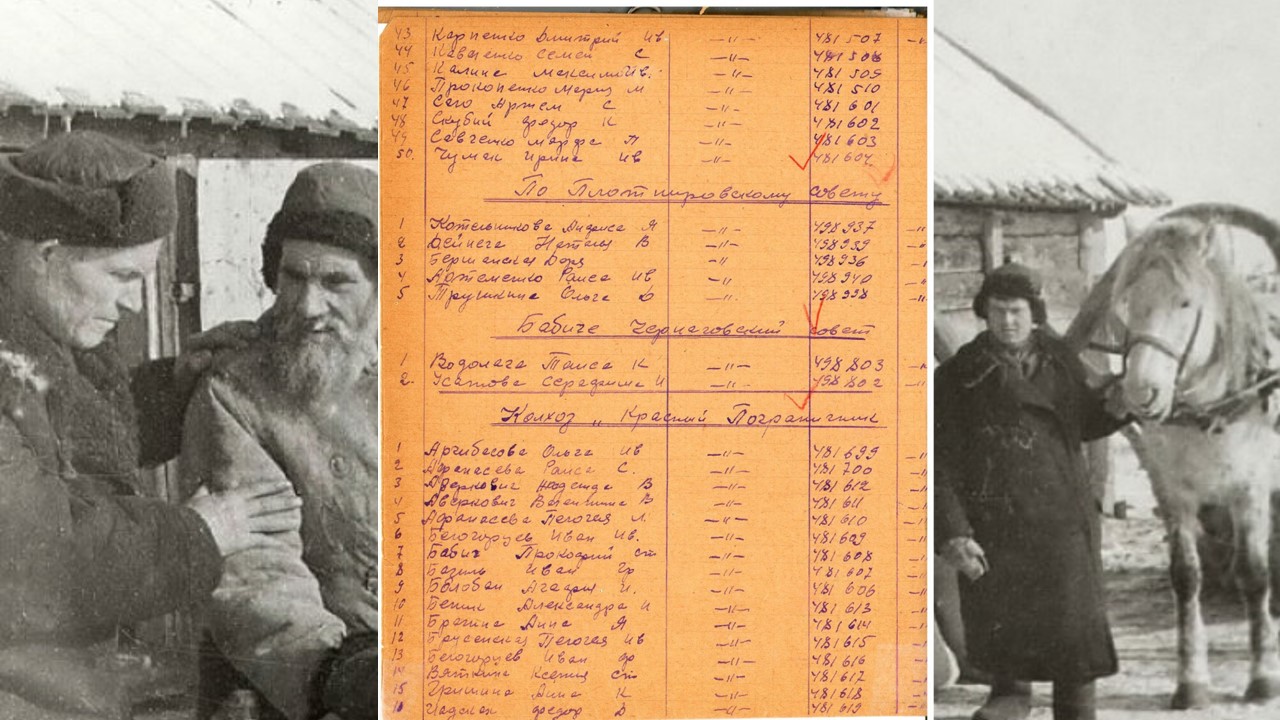 43 Карпенко Дмитрий Ив. —"— 481507
44 Савченко Семен С —"— 481508
45 Калина Максим Ив. —"— 481509
46 Прокопенко Мария М —"— 481510
47 Сего Артем С —"— 481601
48 Скубий Федор К —"— 481602
49 Савченко Марфа П —"— 481603
50. Чумак Ирина Ив —"— 481604
По совету
1 Котельникова Я —"— 498937
2 Дейнега Наталь В —"— 498939
3 Берманска Доря —"— 498936
4 Артеменко Раиса Ив —"— 498940
5 Трушкина Ольга —"— 498998
Бабиче Черниговский совет
1 Водолага Таиса К —"— 498803
2. Усатова Серафима И —"— 498802
Колхоз „Красний Пограничник
1 Арчибасова Ольга Ив —"— 481699
2 Афанасева Раиса С. —"— 481700
3 Аверкович Надежда В —"— 481612
4 Аверкович Валентина В —"— 481611
5 Афанасева Пегогея Л. —"— 481610
6 Белогорцев Иван Ив. —"— 481609
7 Бабич Прокофий ст —"— 481608
8 Базиль Иван Гр —"— 481607
9 Балобан Агафия И. —"— 481606
10 Беник Александра И —"— 481613
11 Брагина Анна Я —"— 481614
12 Брусенская Пегогея Ив —"— 481615
13 Белогорцев Иван Фр —"— 481616
14 Вяткина Ксения ст —"— 481617
15 Гришина Анна К —"— 481618
16 Федор Д —"— 481619